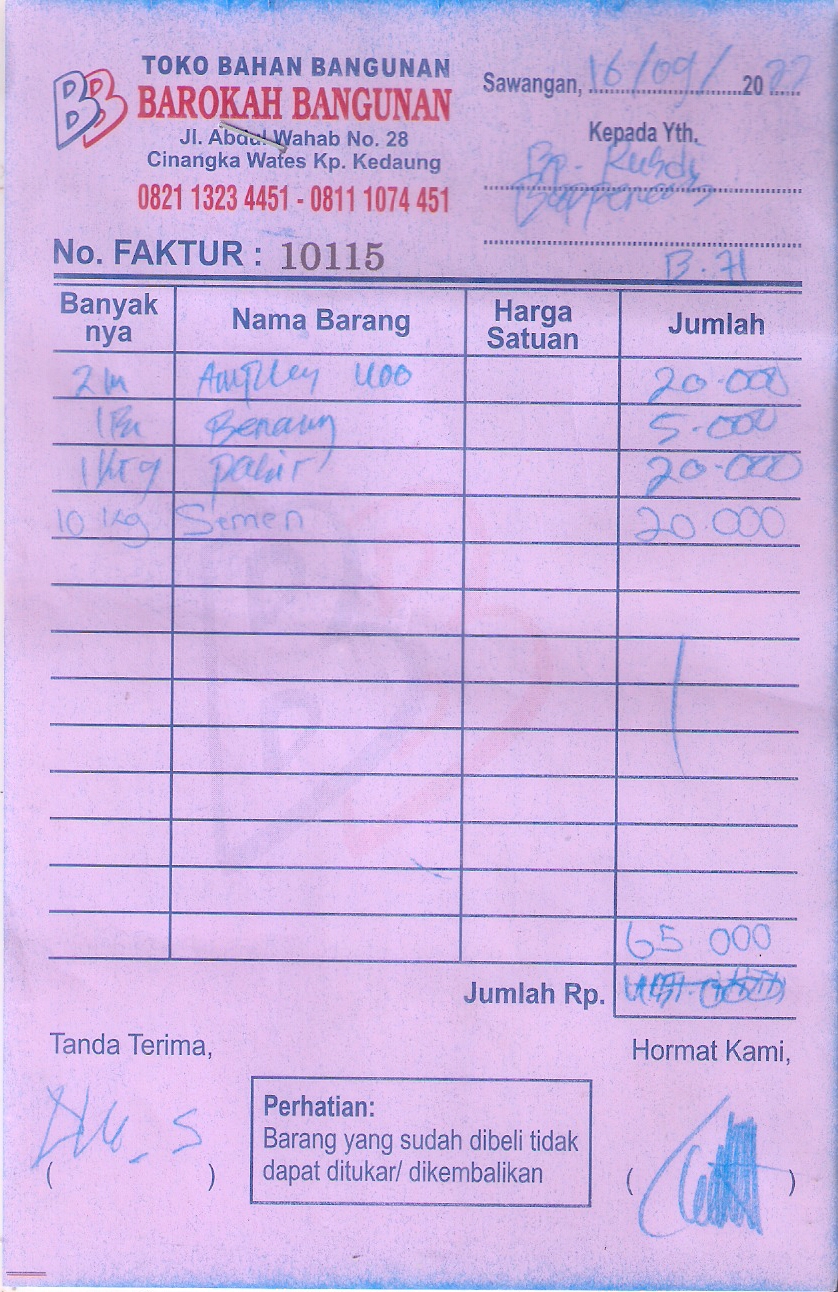 BB TOKO BAHAN BANGUNAN
BAROKAH BANGUNAN
Jl. Abdul Wahab No. 28
Cinangka Wates Kp. Kedaung
0821 1323 4451 - 0811 1074 451
Sawangan, 16/09/ 20 22
Kepada Yth,
Bp. Rusdi
Bappenas
B. 71
No. FAKTUR : 10115
Banyak nya Nama Barang Harga Satuan Jumlah
2 m 400 20.000
Benang 5.000
1 Krg pasir 20.000
10 kg Semen 20.000
65 000
Jumlah Rp.
Tanda Terima,
Hormat Kami,
Perhatian:
Barang yang sudah dibeli tidak
dapat ditukar/ dikembalikan
( )
( )